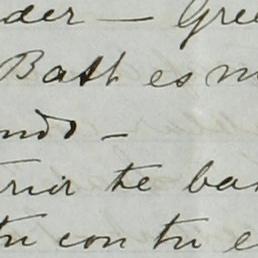 der — Gre
Bath es m
nds —
rrir the ba
tu con tu e